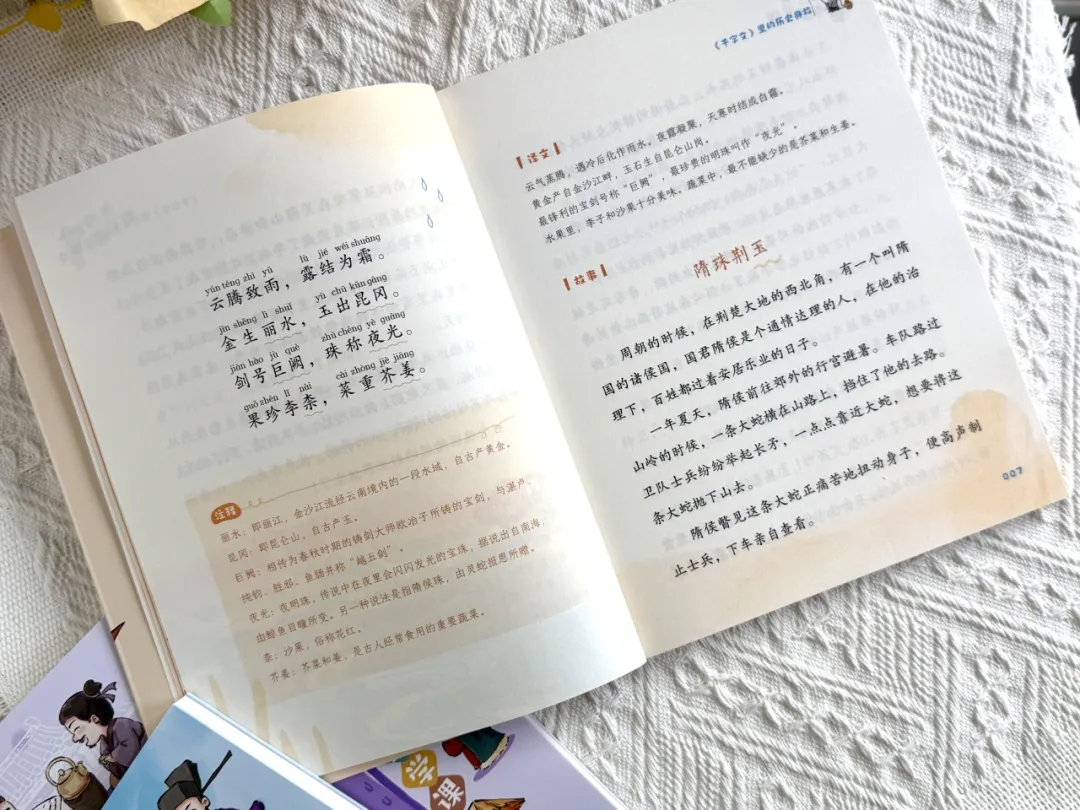 yún téng zhì yǔ lù jié wéi shuāng
云腾致雨，露结为霜。
jīn shēng lì shuǐ yù chū kūn gāng
金生丽水，玉出昆冈。
jiàn hào jù què zhū chēng yè guāng
剑号巨阙，珠称夜光。
guǒ zhēn lǐ nài cài zhòng jiè jiāng
果珍李柰，菜重芥姜。
注释
丽水：即丽江，金沙江流经云南境内的一段水域，自古产黄金。
昆冈：即昆仑山，自古产玉。
巨阙：相传为春秋时期的铸剑大师欧冶子所铸的宝剑，与湛卢、
纯钧、胜邪、鱼肠并称“越五剑”。
夜光：夜明珠，传说中在夜里会闪闪发光的宝珠，据说出自南海，
由鲸鱼目瞳所变。另一种说法是指隋侯珠，由灵蛇报恩所赠。
柰：沙果，俗称花红。
芥姜：芥菜和姜，是古人经常食用的重要蔬菜。
《千字文》里的历史典故
译文
云气蒸腾，遇冷后化作雨水。夜露凝聚，天寒时结成白霜。
黄金产自金沙江畔，玉石生自昆仑山岗。
最锋利的宝剑号称“巨阙”，最珍贵的明珠叫作“夜光”。
水果里，李子和沙果十分美味。蔬菜中，最不能缺少的是芥菜和生姜。
故事
隋珠荆玉
周朝的时候，在荆楚大地的西北角，有一个叫隋
国的诸侯国，国君隋侯是个通情达理的人，在他的治
理下，百姓都过着安居乐业的日子。
一年夏天，隋侯前往郊外的行宫避暑。车队路过
山岭的时候，一条大蛇横在山路上，挡住了他的去路。
卫队士兵纷纷举起长矛，一点点靠近大蛇，想要将这
条大蛇抛下山去。
隋侯瞥见这条大蛇正痛苦地扭动身子，便高声制
止士兵，下车亲自查看。
007
学
课